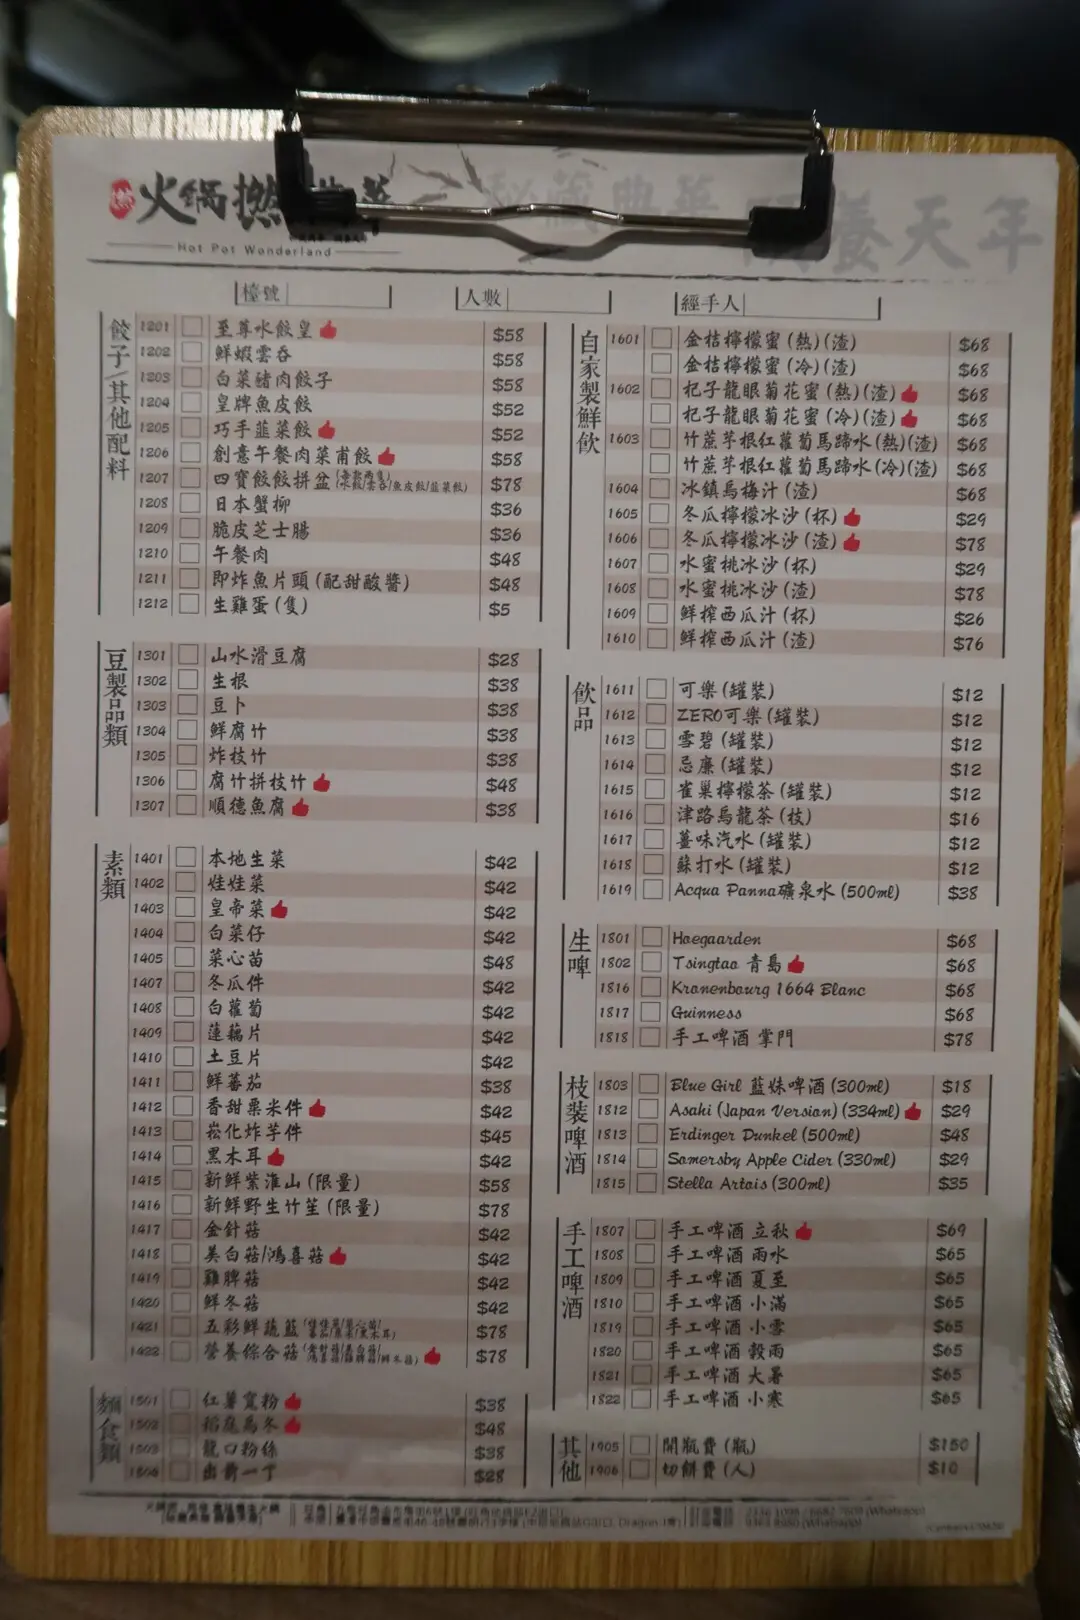 火鍋撚
Hot Pot Wonderland
秘藏典華
養天年
檯號
人數
經手人
餃子/其他配料
1201 至尊水餃皇 $58
1202 鮮蝦雲吞 $58
1203 白菜豬肉餃子 $58
1204 皇牌魚皮餃 $52
1205 巧手韮菜餃 $52
1206 創意午餐肉菜甫餃 $58
1207 四寶餃餃拼盆 (水餃/雲吞/魚皮餃/韮菜餃) $78
1208 日本蟹柳 $36
1209 脆皮芝士腸 $36
1210 午餐肉 $48
1211 即炸魚片頭 (配甜酸醬) $48
1212 生雞蛋 (隻) $5
豆製品類
1301 山水滑豆腐 $28
1302 生根 $38
1303 豆卜 $38
1304 鮮腐竹 $38
1305 炸枝竹 $38
1306 腐竹拼枝竹 $48
1307 順德魚腐 $38
素類
1401 本地生菜 $42
1402 娃娃菜 $42
1403 皇帝菜 $42
1404 白菜仔 $42
1405 菜心苗 $48
1407 冬瓜件 $42
1408 白蘿蔔 $42
1409 蓮藕片 $42
1410 土豆片 $42
1411 鮮蕃茄 $38
1412 香甜粟米件 $42
1413 崧化炸芋件 $45
1414 黑木耳 $42
1415 新鮮紫淮山 (限量) $58
1416 新鮮野生竹笙 (限量) $78
1417 金針菇 $42
1418 美白菇/鴻喜菇 $42
1419 雞脾菇 $42
1420 鮮冬菇 $42
1421 五彩鮮蔬籃 $78
1422 營養綜合菇 $78
麵食類
1501 紅薯寬粉 $38
1502 稻庭烏冬 $48
1503 龍口粉絲 $38
1504 出前一丁 $28
自家製鮮飲
1601 金桔檸檬蜜 (熱) (渣) $68
金桔檸檬蜜 (冷) (渣) $68
1602 杞子龍眼菊花蜜 (熱) (渣) $68
杞子龍眼菊花蜜 (冷) (渣) $68
1603 竹蔗茅根紅蘿蔔馬蹄水 (熱) (渣) $68
竹蔗茅根紅蘿蔔馬蹄水 (冷) (渣) $68
1604 冰鎮烏梅汁 (渣) $68
1605 冬瓜檸檬冰沙 (杯) $29
1606 冬瓜檸檬冰沙 (渣) $78
1607 水蜜桃冰沙 (杯) $29
1608 水蜜桃冰沙 (渣) $78
1609 鮮榨西瓜汁 (杯) $26
1610 鮮榨西瓜汁 (渣) $76
飲品
1611 可樂 (罐裝) $12
1612 ZERO可樂 (罐裝) $12
1613 雪碧 (罐裝) $12
1614 忌廉 (罐裝) $12
1615 雀巢檸檬茶 (罐裝) $12
1616 津路烏龍茶 (枝) $16
1617 薑味汽水 (罐裝) $12
1618 蘇打水 (罐裝) $12
1619 Acqua Panna礦泉水 (500ml) $38
生啤
1801 Hoegaarden $68
1802 Tsingtao 青島 $68
1816 Kronenbourg 1664 Blanc $68
1817 Guinness $68
1818 手工啤酒 掌門 $78
枝裝啤酒
1803 Blue Girl 藍妹啤酒 (300ml) $18
1812 Asahi (Japan Version) (334ml) $29
1813 Erdinger Dunkel (500ml) $48
1814 Somersby Apple Cider (330ml) $29
1815 Stella Artois (300ml) $35
手工啤酒
1807 手工啤酒 立秋 $69
1808 手工啤酒 雨水 $65
1809 手工啤酒 夏至 $65
1810 手工啤酒 小滿 $65
1819 手工啤酒 小雪 $65
1820 手工啤酒 穀雨 $65
1821 手工啤酒 大暑 $65
1822 手工啤酒 小寒 $65
其他
1905 開瓶費 (瓶) $150
1906 切餅費 (人) $10